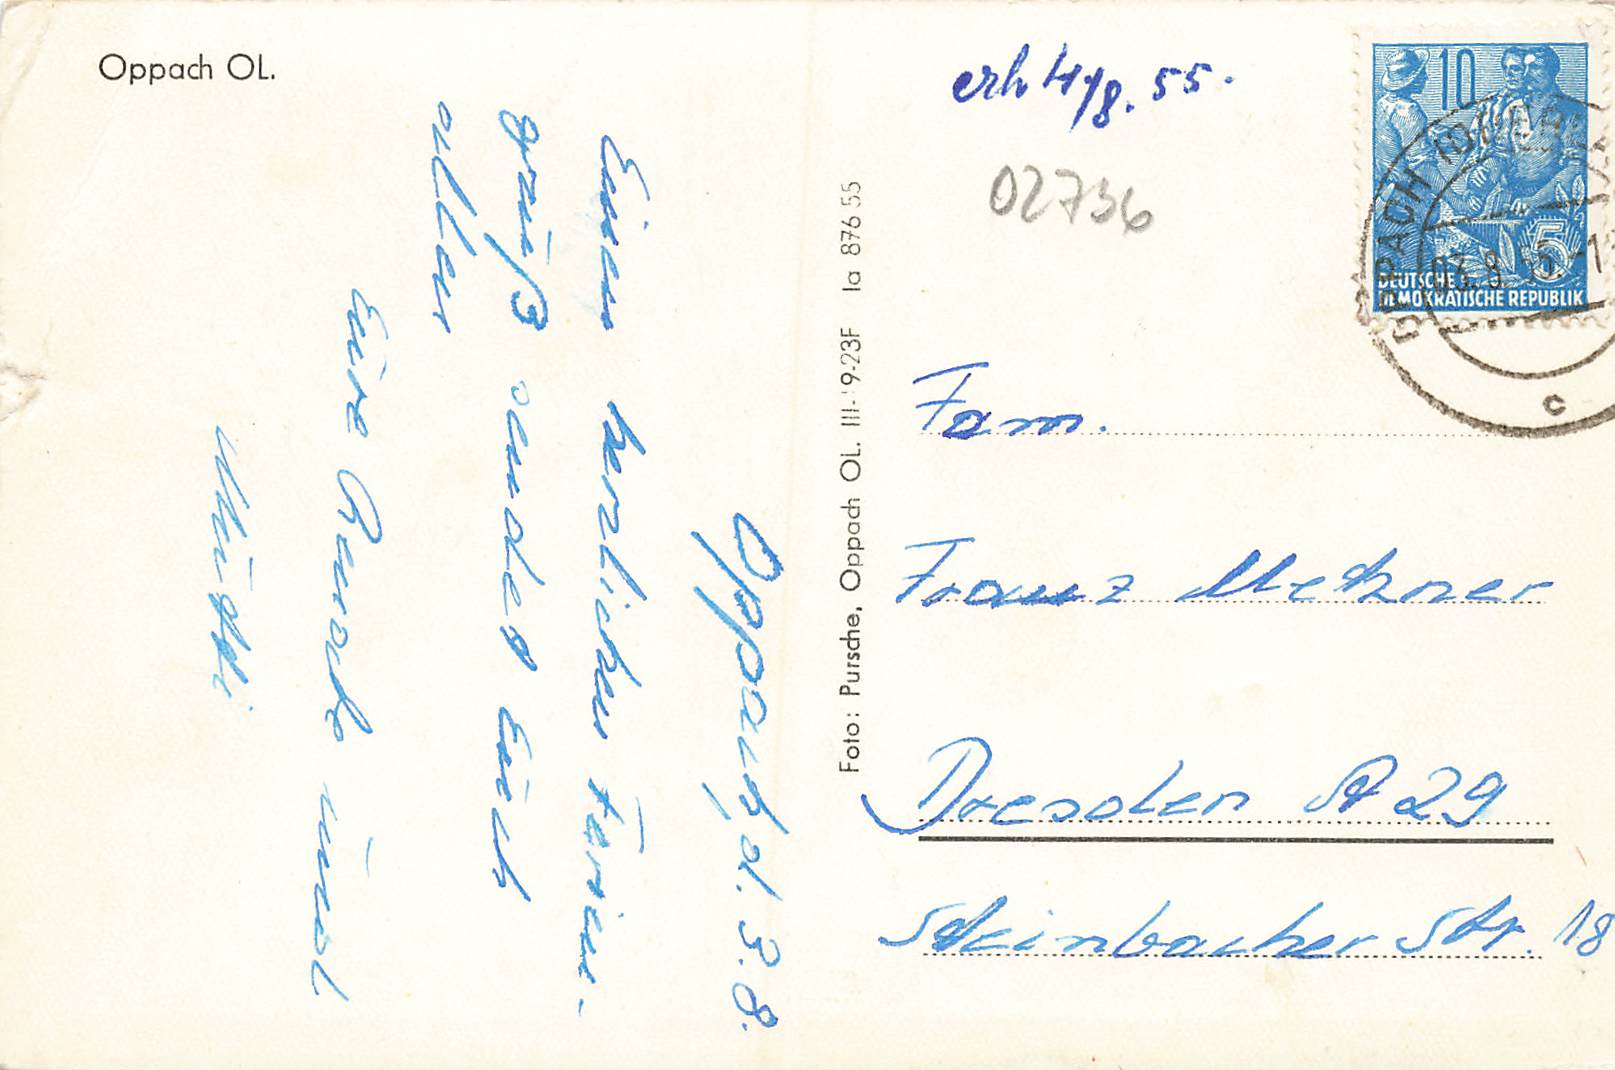 Oppach OL.
Oppach, d. 3. 8.
Einen herzlichen Ferien-
gruß sendet Euch
allen
Eure Renate und
Mutti
Foto: Pursche, Oppach OL. III-9-23F Ia 876 55
erh 4/8. 55.
02736
10
5
DEUTSCHE
DEMOKRATISCHE REPUBLIK
OPPACH
03.8.55.-1
c
Fam.
Franz Metzner
Dresden A 29
Steinbacher Str. 18